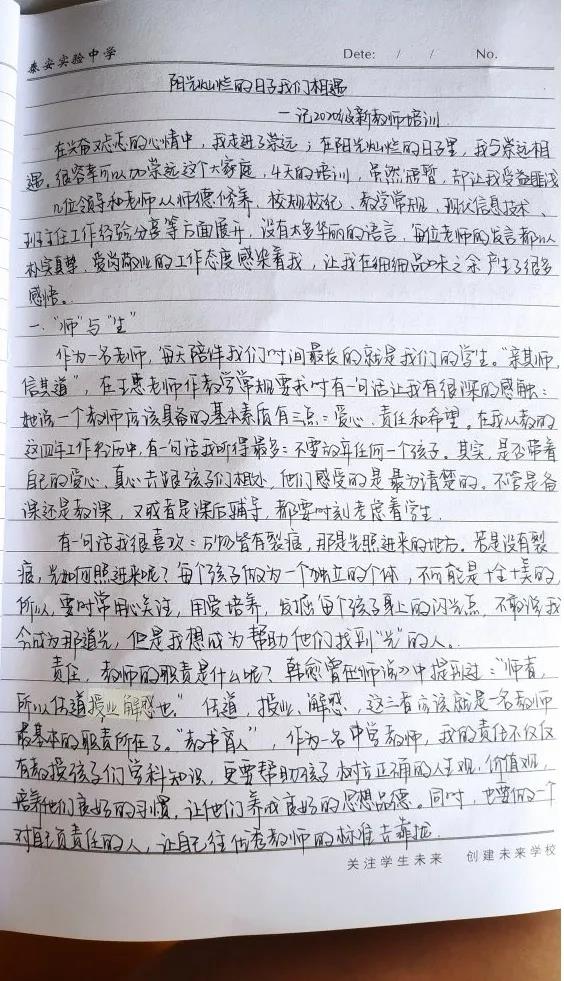 泰安实验中学 Dete: / / No.
阳光灿烂的日子我们相遇
—记2020级新教师培训
在兴奋又忐忑的心情中，我走进了荣远；在阳光灿烂的日子里，我与荣远相
遇。很荣幸可以加荣远这个大家庭，4天的培训，虽然短暂，却让我受益匪浅
几位领导和老师从师德修养、校规校纪、教学常规、现代信息技术、
班主任工作经验分享等方面展开，没有太多华丽的语言，每位老师的发言都以
朴实真挚，爱岗敬业的工作态度感染着我，让我在细细品味之余产生了很多
感悟。
一、“师”与“生”
作为一名老师，每天陪伴我们时间最长的就是我们的学生。“亲其师，
信其道”，在王惠老师作教学常规要求时有一句话让我有很深的感触：
她说一个教师应该具备的基本素质有三点：爱心、责任和希望。在我从教的
这四年工作经历中，有一句话我听得最多：不要放弃任何一个孩子。其实，是否带着
自己的爱心、真心去跟孩子们相处，他们感受的是最为清楚的。不管是备
课还是教课，又或者是课后辅导，都要时刻考虑着学生。
有一句话我很喜欢：万物皆有裂痕，那是光照进来的地方。若是没有裂
痕，光如何照进来呢？每个孩子做为一个独立的个体，不可能是十全十美的，
所以，要时常用心关注，用爱培养，发掘每个孩子身上的闪光点，不敢说我
会成为那道光，但是我想成为帮助他们找到“光”的人。
责任，教师的职责是什么呢？韩愈曾在《师说》中提到过：“师者，
所以传道授业解惑也。”传道，授业，解惑，这三者应该就是一名教师
最基本的职责所在了。“教书育人”，作为一名中学教师，我的责任不仅仅
有教授孩子们学科知识，更要帮助孩子树立正确的人生观，价值观，
培养他们良好的习惯，让他们养成良好的思想品德。同时，也要做一个
对自己负责任的人，让自己往优秀教师的标准去靠拢。
关注学生未来 创建未来学校